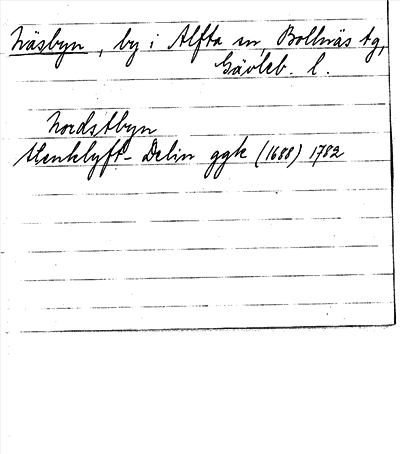 Näsbyn, by i Alfta sn, Bollnäs tg,
Gävleb. l.
Nordstbyn
Utenklyft- Delin ggk (1688) 1782